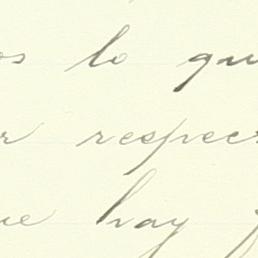 os lo qu
r respec
ue hay